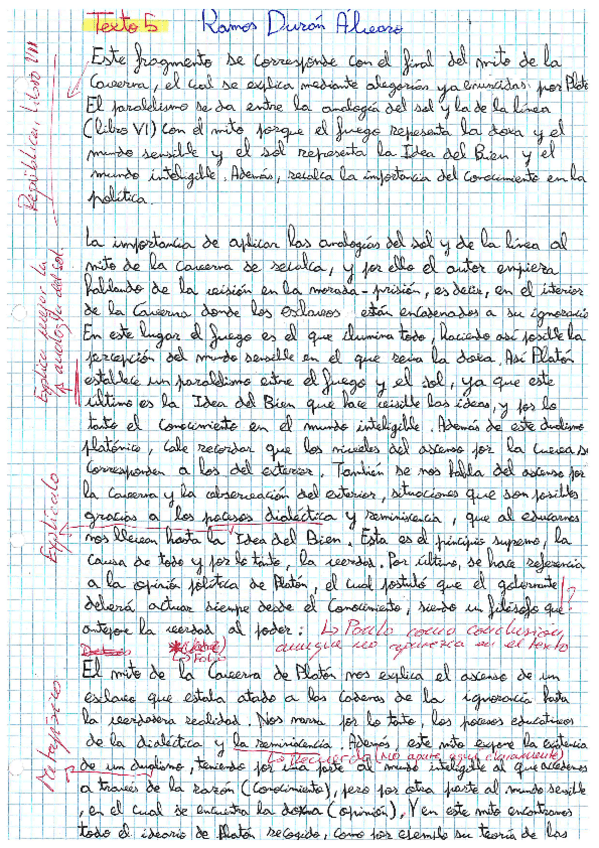 Texto 5 Ramos Durán Álvaro
República, Libro VII
Este fragmento se corresponde con el final del mito de la
Caverna, el cual se explica mediante alegorías ya enunciadas por Plató
El paralelismo se da entre la analogía del sol y la de la línea
(libro VI) con el mito, porque el fuego representa la doxa y el
mundo sensible y el sol representa la Idea del Bien y el
mundo inteligible. Además, recalca la importancia del conocimiento en la
política.
Explica mejor la analogía del sol.
La importancia de aplicar las analogías del sol y de la línea al
mito de la Caverna se recalca, y por ello el autor empieza
hablando de la visión en la morada-prisión, es decir, en el interior
de la Caverna donde los esclavos están encadenados a su ignoracia
En este lugar el fuego es el que ilumina todo, haciendo así posible la
percepción del mundo sensible en el que reina la doxa. Así Platón
establece un paralelismo entre el fuego y el sol, ya que este
último es la Idea del Bien que hace visible las ideas, y por lo
tanto el conocimiento en el mundo inteligible. Además de este dualismo
platónico, cabe recordar que los niveles del ascenso por la cueva se
corresponden a los del exterior. También se nos habla del ascenso por
la Caverna y la observación del exterior, situaciones que son posibles
gracias a los procesos dialéctica y reminiscencia, que al educarnos
Explícalo
nos llevan hasta la Idea del Bien. Esta es el principio supremo, la
causa de todo y por lo tanto, la verdad. Por último, se hace referencia
a la opinión política de Platón, el cual postuló que el gobernante
deberá actuar siempre desde el Conocimiento, siendo un filósofo que ?
antepone la verdad al poder: Ponlo como conclusión,
aunque no aparezca en el texto
El mito de la Caverna de Platón nos explica el ascenso de un
esclavo que estaba atado a las cadenas de la ignorancia hasta
la verdadera realidad. Nos narra por lo tanto, los procesos educativos
de la dialéctica y la reminiscencia. Además, este mito expone la existencia
Recuerda (no aparece aquí claramente)
Metafísico
de un dualismo, teniendo por una parte al mundo inteligible al que accedemos
a través de la razón (Conocimiento), pero por otra parte al mundo sensible
, en el cual se encuentra la doxa (opinión). Y en este mito encontramos
todo el ideario de Platón recogido, como por ejemplo su teoría de las